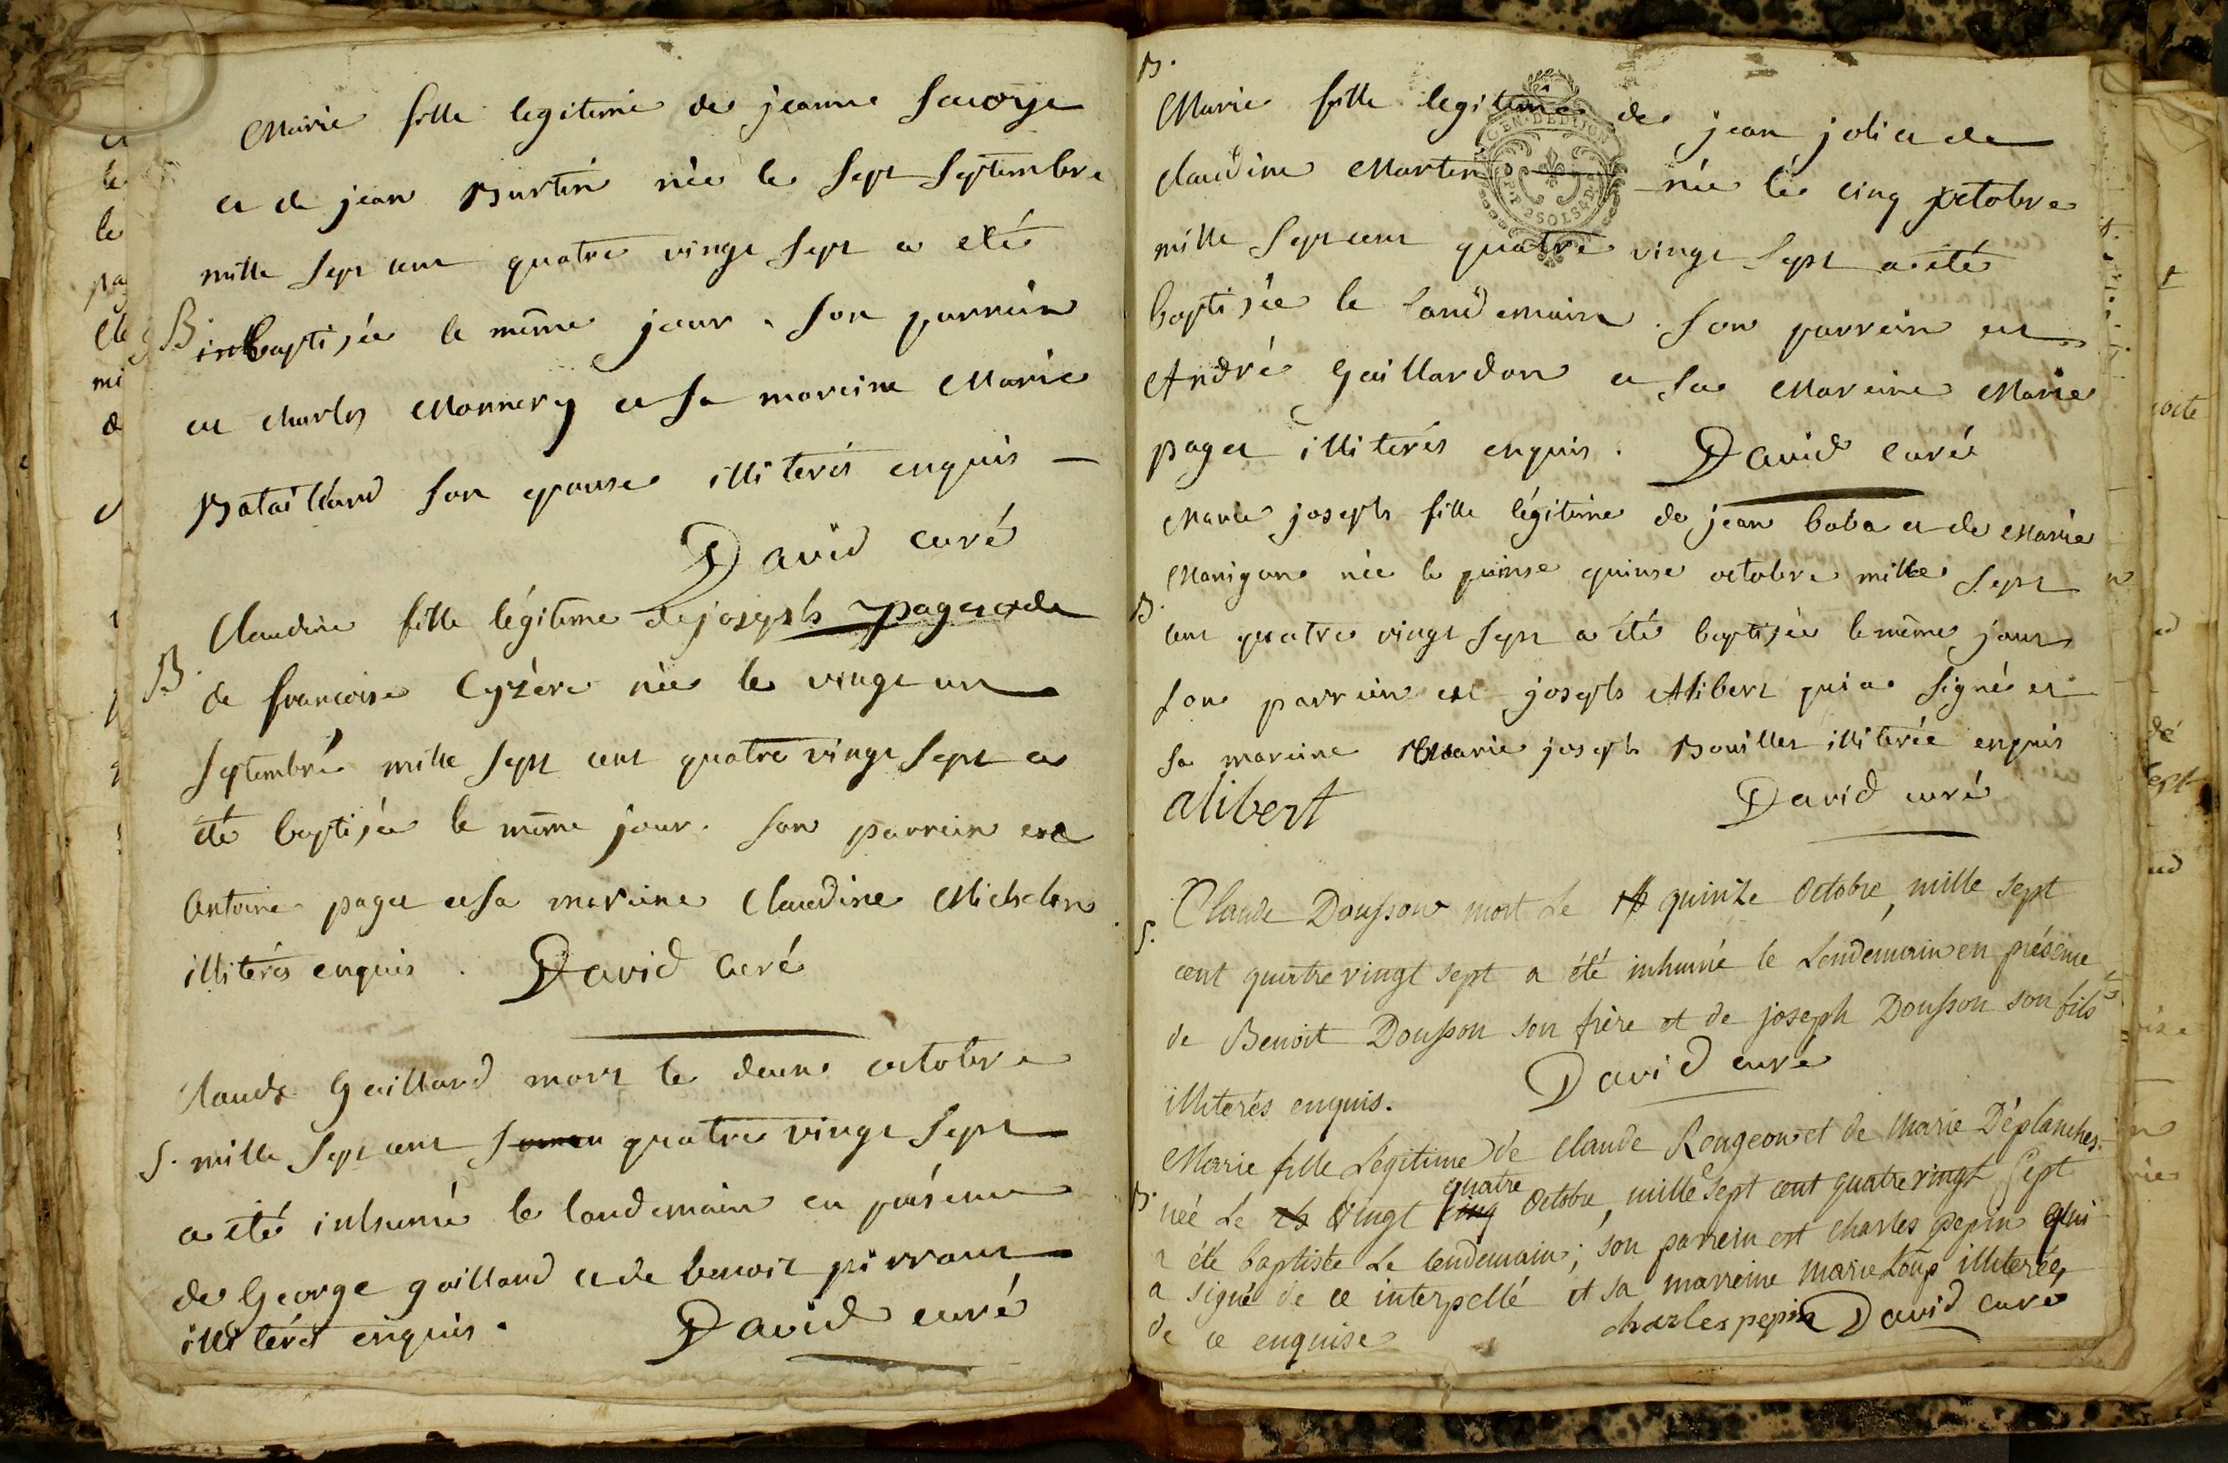 Marie fille legitime de jeanne Savoye
et de jean Burtin née le sept septembre
mille sept cent quatre vingt sept a eté
B. baptisée le même jour. son parrein
est charles Monnery et sa mareine Marie
Bataillard son epouse illiterés enquis
David curé
Claudine fille légitime de joseph paget et de
B. de francoise Cyzère née le vingt un
septembre mille sept cent quatre vingt sept a
été baptisée le même jour. son parrein est
antoine paget et sa mareine Claudine Michelon
illiterés enquis. David curé
Claude Gaillard mort le deux octobre
S. mille sept cent quatre vingt sept
a été inhumé le landemain en présence
de George gaillard et de benoit pirraut
illiterés enquis. David curé
B.
Marie fille legitime de jean jolia et de
GEN. DE DIJON
Claudine Martin née le cinq octobre
mille sept cent quatre vingt sept a été
baptisée le landemain. son parrein est
André Gaillardon et sa Mareine Marie
paget illiterés enquis. David curé
Marie joseph fille légitime de jean baba et de Marie
Manigand née le quinse octobre mille sept
B. cent quatre vingt sept a été baptisée le même jour
son parrein est joseph Alibert qui a signé et
sa mareine Marie joseph Bouillet illiterée enquis
alibert David curé
Claude Dousson mort Le quinze Octobre, mille sept
S.
cent quatre vingt sept a été inhumé le Lendemain en présence
de Benoit Dousson son frère et de joseph Dousson son fils
illiterés enquis. David curé
Marie fille Légitime de Claude Rougeon et de Marie Déplanches
quatre
B. née Le vingt cinq Octobre, mille sept cent quatre vingt sept
a été baptisée Le lendemain; son parrein est charles pepin qui
a signé de ce interpellé et sa marreine Marie Loup illiterée,
de ce enquise charles pepin David curé